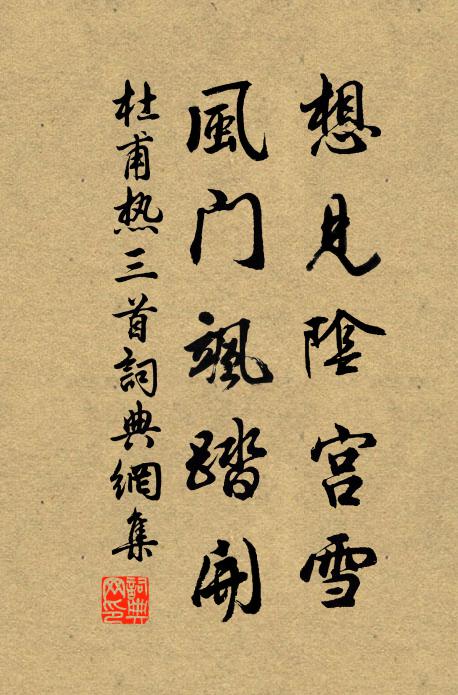 想見陰宮雪
風门颯踏開
杜甫热三首詞典網集
詞典網印